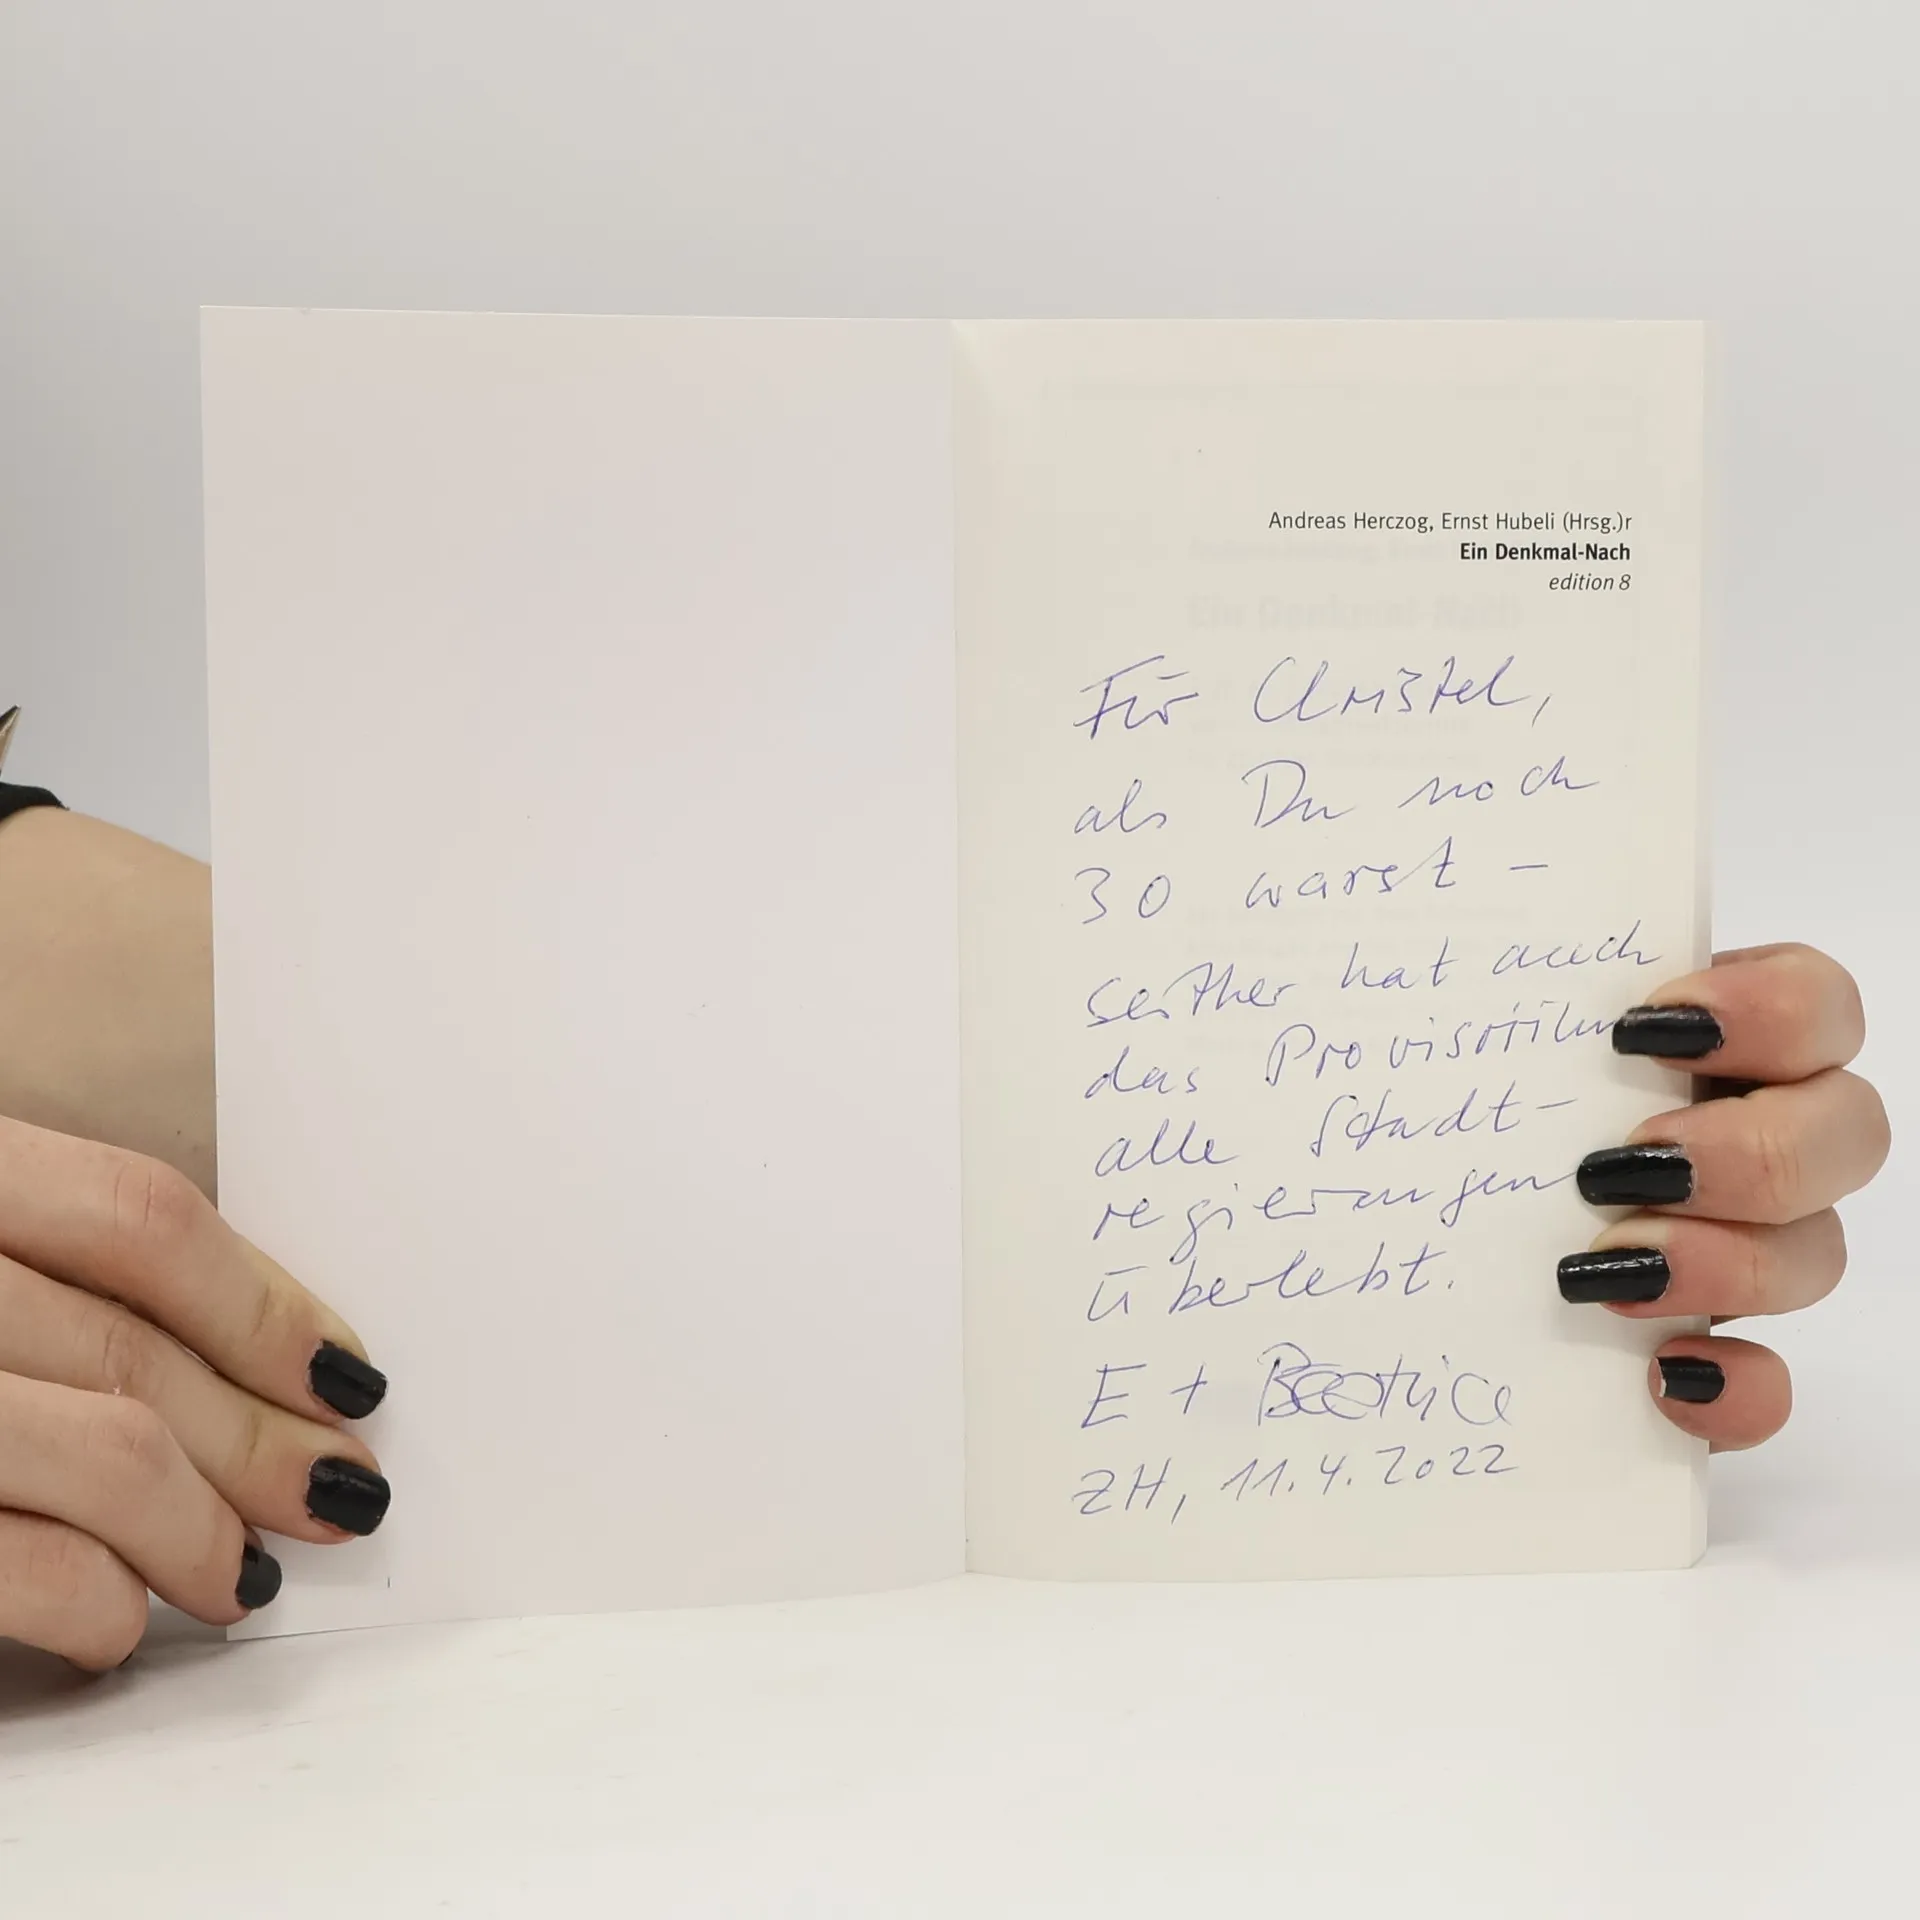 Andreas Herczog, Ernst Hubeli (Hrsg.)r
Ein Denkmal-Nach
edition 8
Für Christel,
als Du noch
30 warst –
seither hat auch
das Provisorium
alle Stadt-
regierungen
überlebt.
E + Beatrice
ZH, 11.4.2022